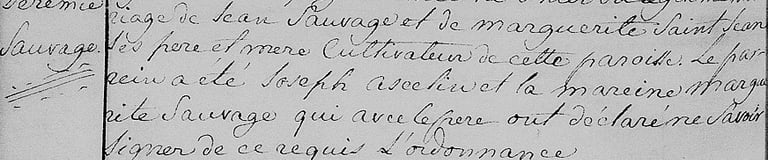 Jeremie
Sauvage.
riage de Jean Sauvage et de marguerite Saint Jean
Ses pere et mere Cultivateur de cette paroisse. Le par-
rein a été Joseph ascelin et la mareine margue
rite Sauvage qui avec le pere ont déclaré ne Savoir
signer de ce requis L'ordonnance